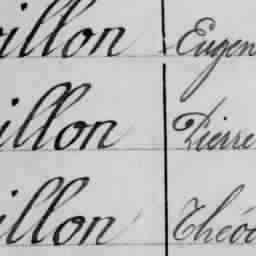 illon Eugen
illon Pierre
illon Théod